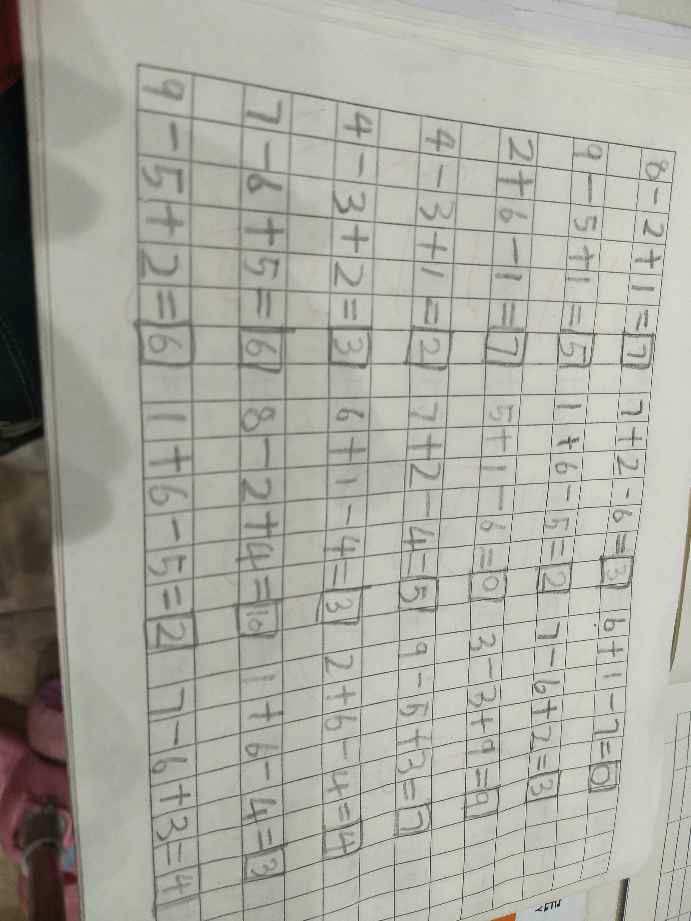 8-2+1=7 7+2-6=3 6+1-7=0
9-5+1=5 1+6-5=2 7-6+2=3
2+6-1=7 5+1-6=0 3-3+9=9
4-3+1=2 7+2-4=5 9-5+3=7
4-3+2=3 6+1-4=3 2+6-4=4
7-6+5=6 8-2+4=10 1+6-4=3
9-5+2=6 1+6-5=2 7-6+3=4